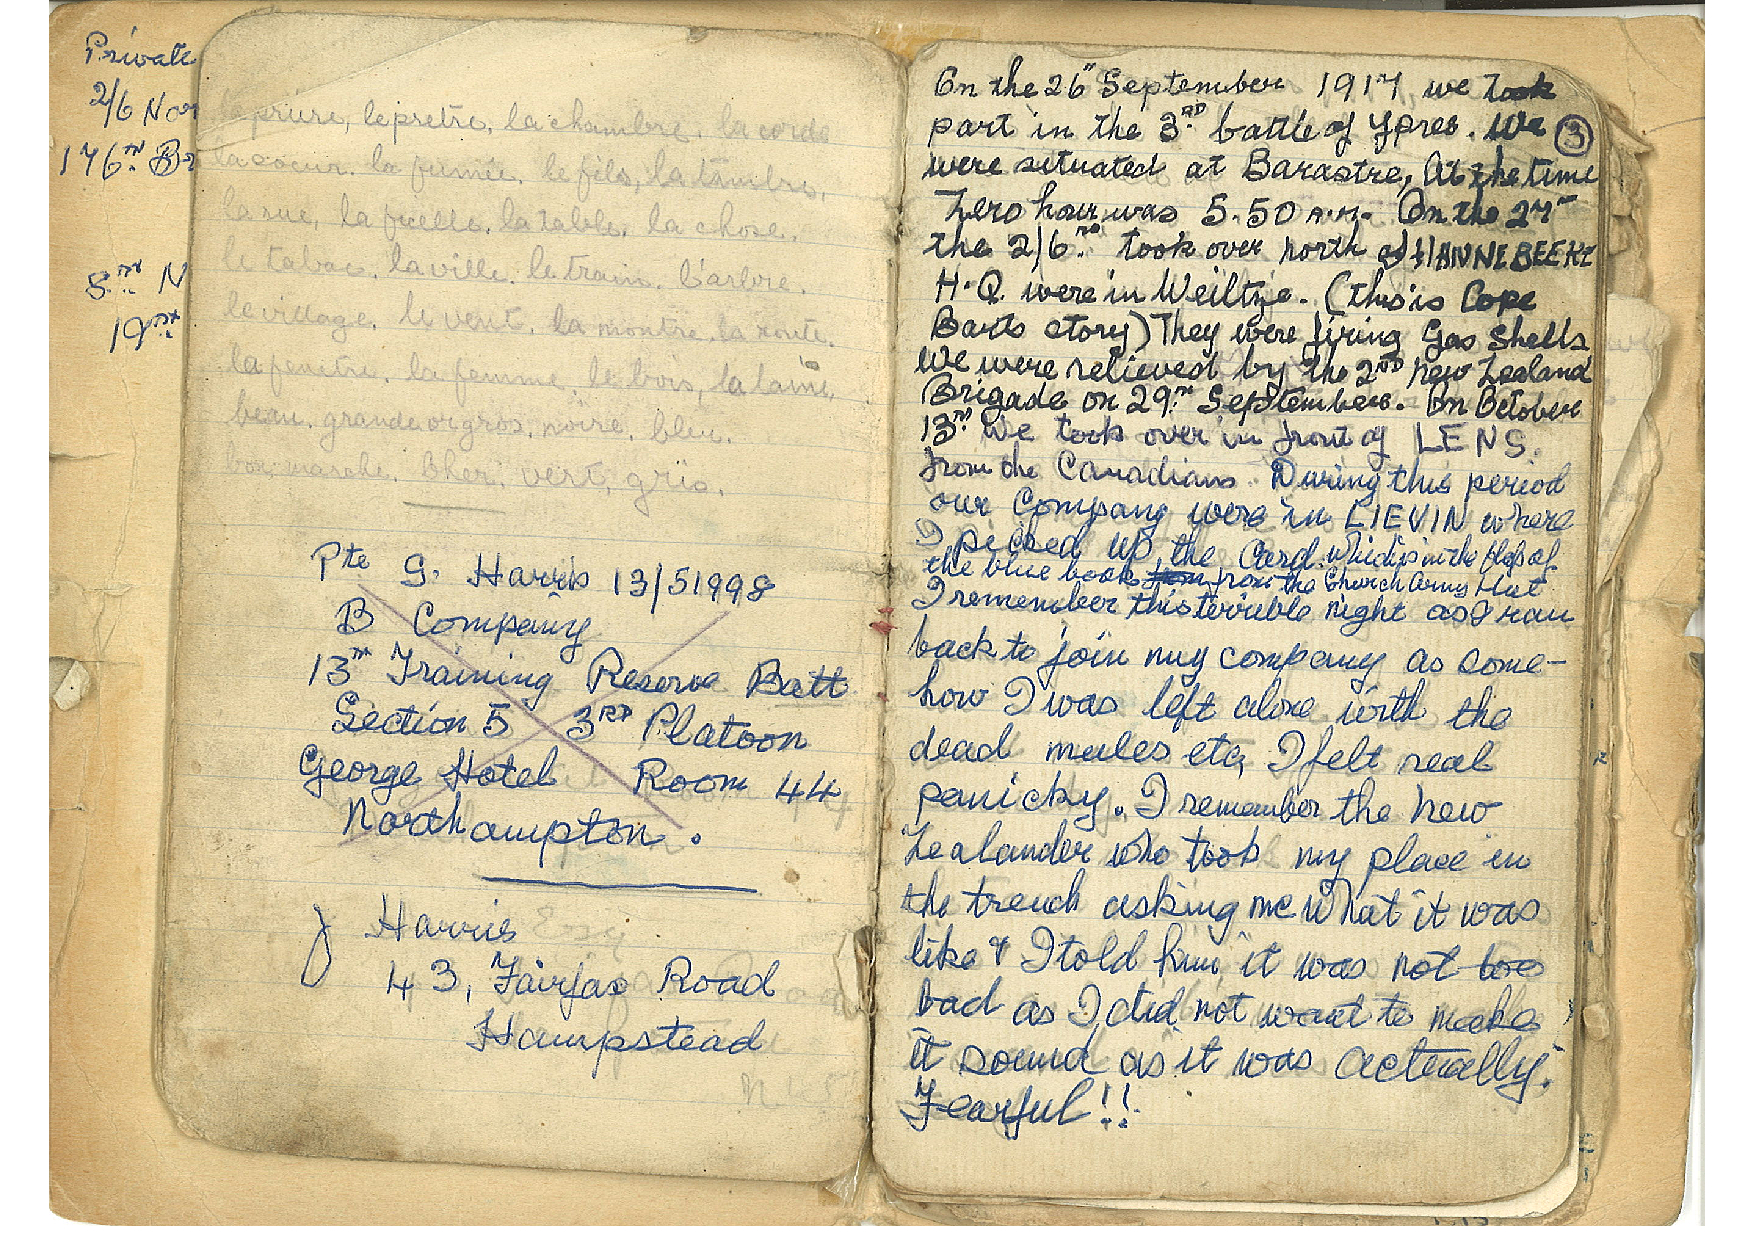 Private
2/6 Nor
176th Br
8th N
19th
la priere, le pretre, la chambre, la corde
la soeur, la fumée, le fils, la timbre,
la rue, la ficelle, la table, la chose,
le tabac, la ville, le train, l'arbre,
le village, le vent, la montre, la route,
la fenetre, la femme, le bois, la lame,
beau, grande or gros, noire, bleu,
bon marche, cher, vert, gris.
Pte G. Harris 13/51998
B Company
13th Training Reserve Batt
Section 5 3RD Platoon
George Hotel Room 44
Northampton.
J Harris Esq
43, Fairfax Road
Hampstead
N.W.
On the 26" September 1917, we took
part in the 3RD battle of Ypres. We ③
were situated at Barastre, At the time
Zero hour was 5.50 A.M. On the 27th
the 2/6th took over north of HANNEBEEKE
H.Q. were in Weiltje. (this is Cope
Barts story) They were firing Gas Shells
We were relieved by the 2ND New Zealand
Brigade on 29th September. On October
13th we took over in front of LENS.
from the Canadians. During this period
our Company were in LIEVIN where
I picked up the Card. which is in the flap of
the blue book from the Church Army Hut
I remember this terrible night as I ran
back to join my company as some-
how I was left alone with the
dead mules etc, I felt real
panicky. I remember the New
Zealander who took my place in
the trench asking me what it was
like & I told him it was not too
bad as I did not want to make
it sound as it was actually.
Fearful!!